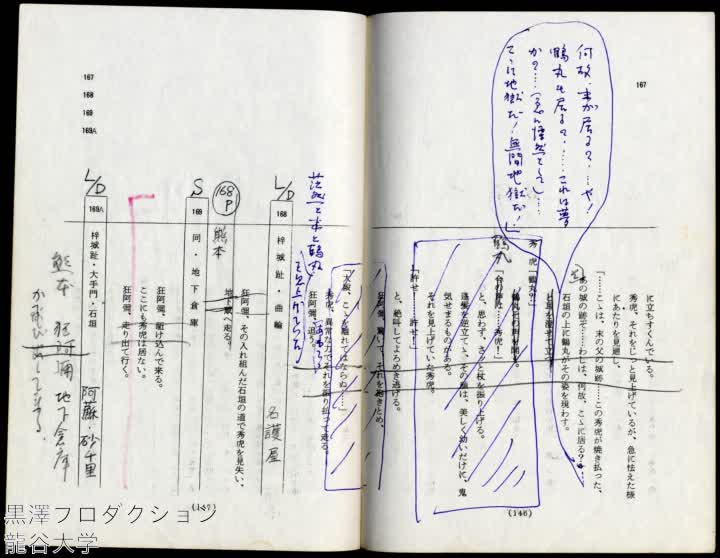 167
何故、末が居る?……や!
鶴丸も居る?……これは夢
か?……(忽然として)……
て、に地獄だ!無間地獄だ!」
に立ちすくんでゐる。
秀虎、それをじっと見上げているが、急に怯えた様
にあたりを見廻し、
「……こゝは、末の父の城跡……この秀虎が焼き払った、
あの城の跡ぞ……わしは、何故、こゝに居る?……
石垣の上に鶴丸がその姿を現わす。
と耳を澄せて立つ
秀虎「鶴丸?」
鶴丸
鶴丸その声を聞き、
「今の声は……秀虎!」
と、思わず、さっと杖を振り上げる。
蓬髪を逆立てゝ、その顔は、美しく幼いだけに、鬼
気せまるものがある。
それを見上げていた秀虎、
「許せ!……許せ!」
と、絶叫してよろめき逃げる。
狂阿彌、驚いて、それを抱きとめ、
(146)
167
168
169
169A
「大殿、こゝを離れてはならぬ……」
秀虎、異常な力でそれを振り払って走る。
狂阿彌、追う。
茫然と末と鶴丸
L/D
168 梓城趾・曲輪
名護屋
狂阿彌、その入れ組んだ石垣の道で秀虎を見失い、
地下蔵へ走る。
168P
熊本
S
169 同・地下倉庫
狂阿彌、駈け込んで来る。
ここにも秀虎は居ない。
狂阿彌、走り出て行く。
L/D
169A 梓城趾・大手門・石垣
阿蘇・砂千里
熊本 狂阿彌 地下倉庫
(147)
黒澤プロダクション
龍谷大学